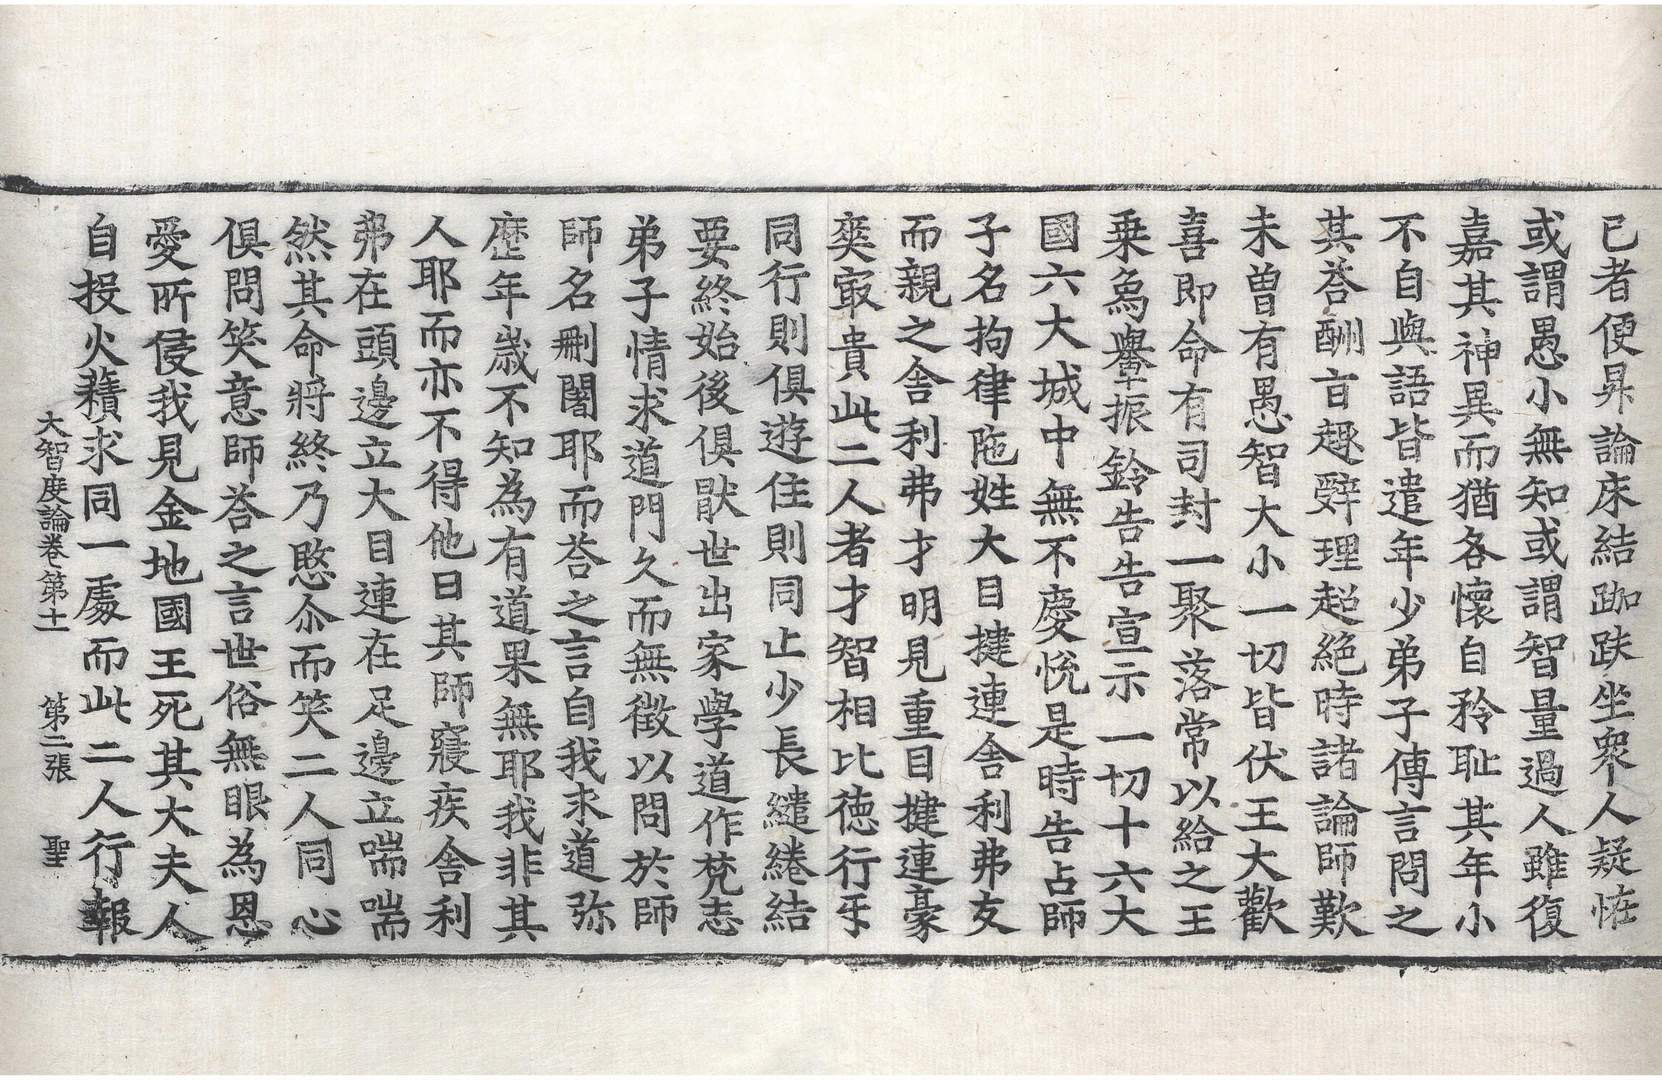 已者便昇論床結跏趺坐衆人疑恠
或謂愚小無知或謂智量過人雖復
嘉其神異而猶各懷自矜耻其年小
不自與語皆遣年少弟子傳言問之
其荅酬旨趣辭理超絕時諸論師歎
未曽有愚智大小一切皆伏王大歡
喜即命有司封一聚落常以給之王
乗象轝振鈴告告宣示一切十六大
國六大城中無不慶悅是時告占師
子名拘律陁姓大目揵連舍利弗友
而親之舍利弗才明見重目揵連豪
爽㝡貴此二人者才智相比德行互
同行則俱遊住則同止少長繾綣結
要終始後俱猒世出家學道作梵志
弟子情求道門久而無徵以問於師
師名刪闍耶而荅之言自我求道弥
歷年歲不知為有道果無耶我非其
人耶而亦不得他日其師寢疾舍利
弗在頭邊立大目連在足邊立喘喘
然其命將終乃愍尒而笑二人同心
俱問笑意師荅之言世俗無眼為恩
愛所侵我見金地國王死其大夫人
自投火𧂐求同一處而此二人行報
大智度論卷第十一 第二張 聖